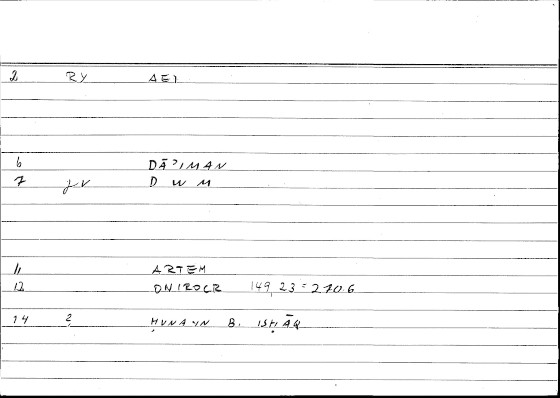 2 RY AEI
6 DĀʾIMAN
7 D W M
11 ARTEM
12 ONIROCR 149,23 = 270.6
14 2 ḤUNAYN B. ISḤĀQ